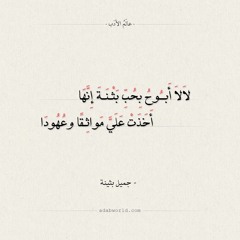 - عالم الأدب -
لاَلاَ أَبــوحُ بِحُبِّ بَثْنـَـةَ إِنَّهَا
أَخَذَتْ عَلَيَّ مَواثِقًا وَعُهُودًا
- جميل بثينة -
adabworld.com